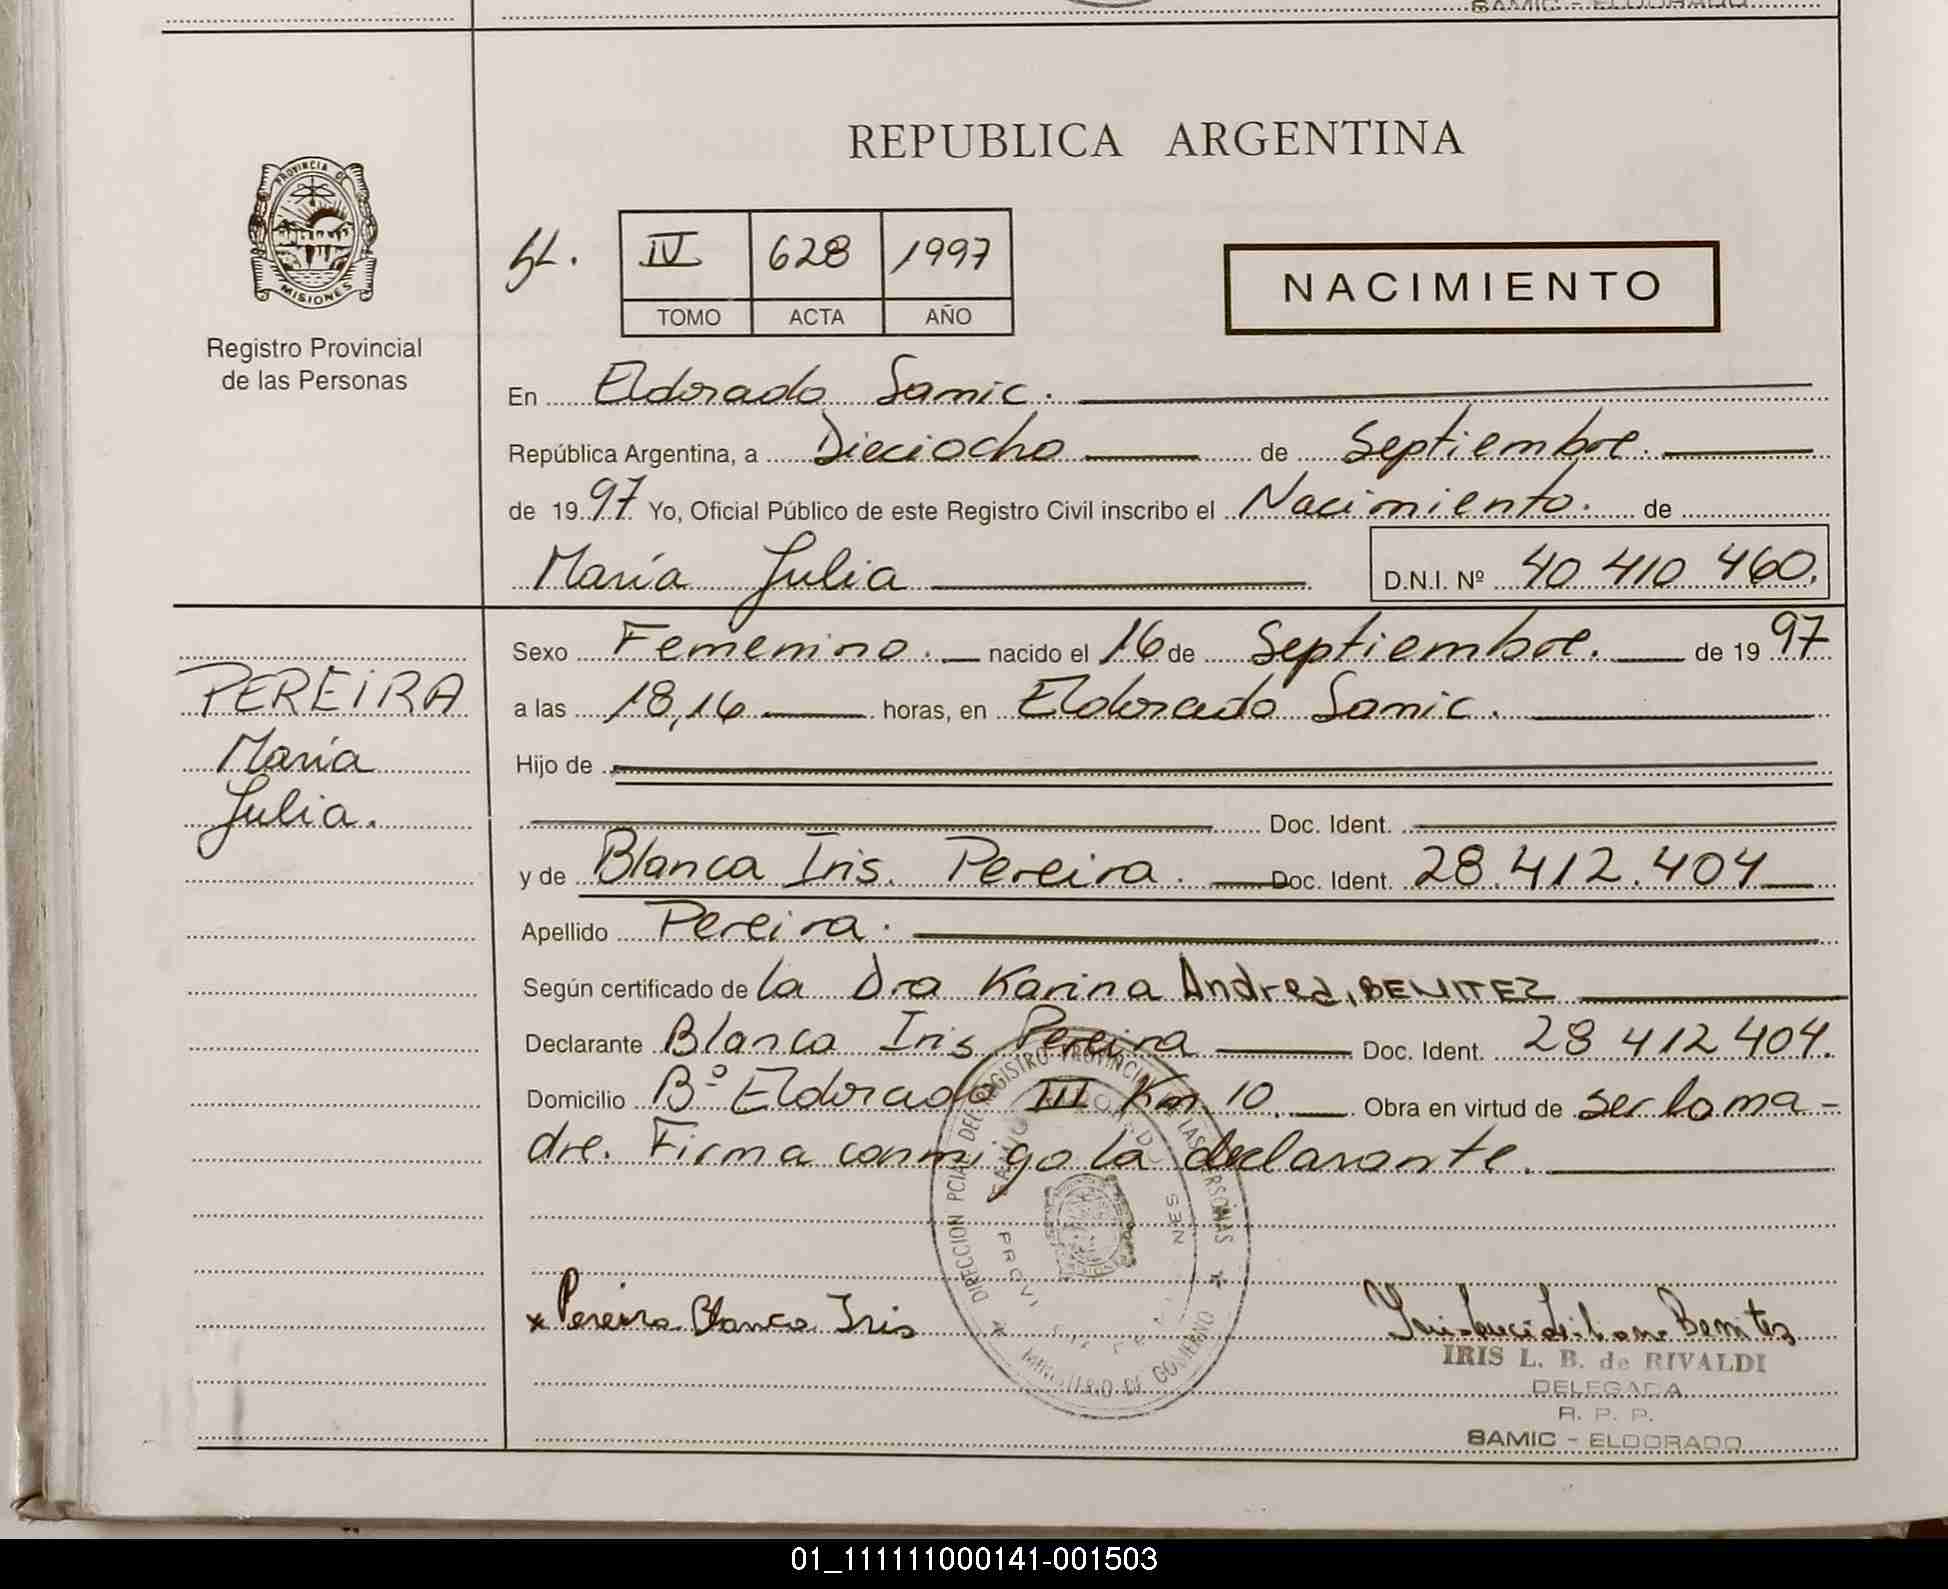 SAMIC - ELDORADO
PROVINCIA DE
MISIONES
Registro Provincial
de las Personas
REPUBLICA ARGENTINA
IV 628 1997
TOMO ACTA AÑO
NACIMIENTO
En Eldorado Samic.
República Argentina, a Dieciocho de Septiembre.
de 1997 Yo, Oficial Público de este Registro Civil inscribo el Nacimiento. de
María Julia D.N.I. Nº 40 410 460.
PEREIRA
María
Julia.
Sexo Femenino. nacido el 16 de Septiembre. de 1997
a las 18,16 horas, en Eldorado Samic.
Hijo de
Doc. Ident.
y de Blanca Iris. Pereira. Doc. Ident. 28.412.404
Apellido Pereira.
Según certificado de la Dra Karina Andrea, BENITEZ
Declarante Blanca Iris Pereira Doc. Ident. 28 412 404.
Domicilio Bº Eldorado III Km 10. Obra en virtud de ser la ma-
dre. Firma conmigo la declarante.
DIRECCION PCIAL DEL REGISTRO PROVINCIAL DE LAS PERSONAS
MINISTERIO DE GOBIERNO
x Pereira Blanca Iris
Benitez
IRIS L. B. de RIVALDI
DELEGADA
R. P. P.
SAMIC - ELDORADO
01_111111000141-001503